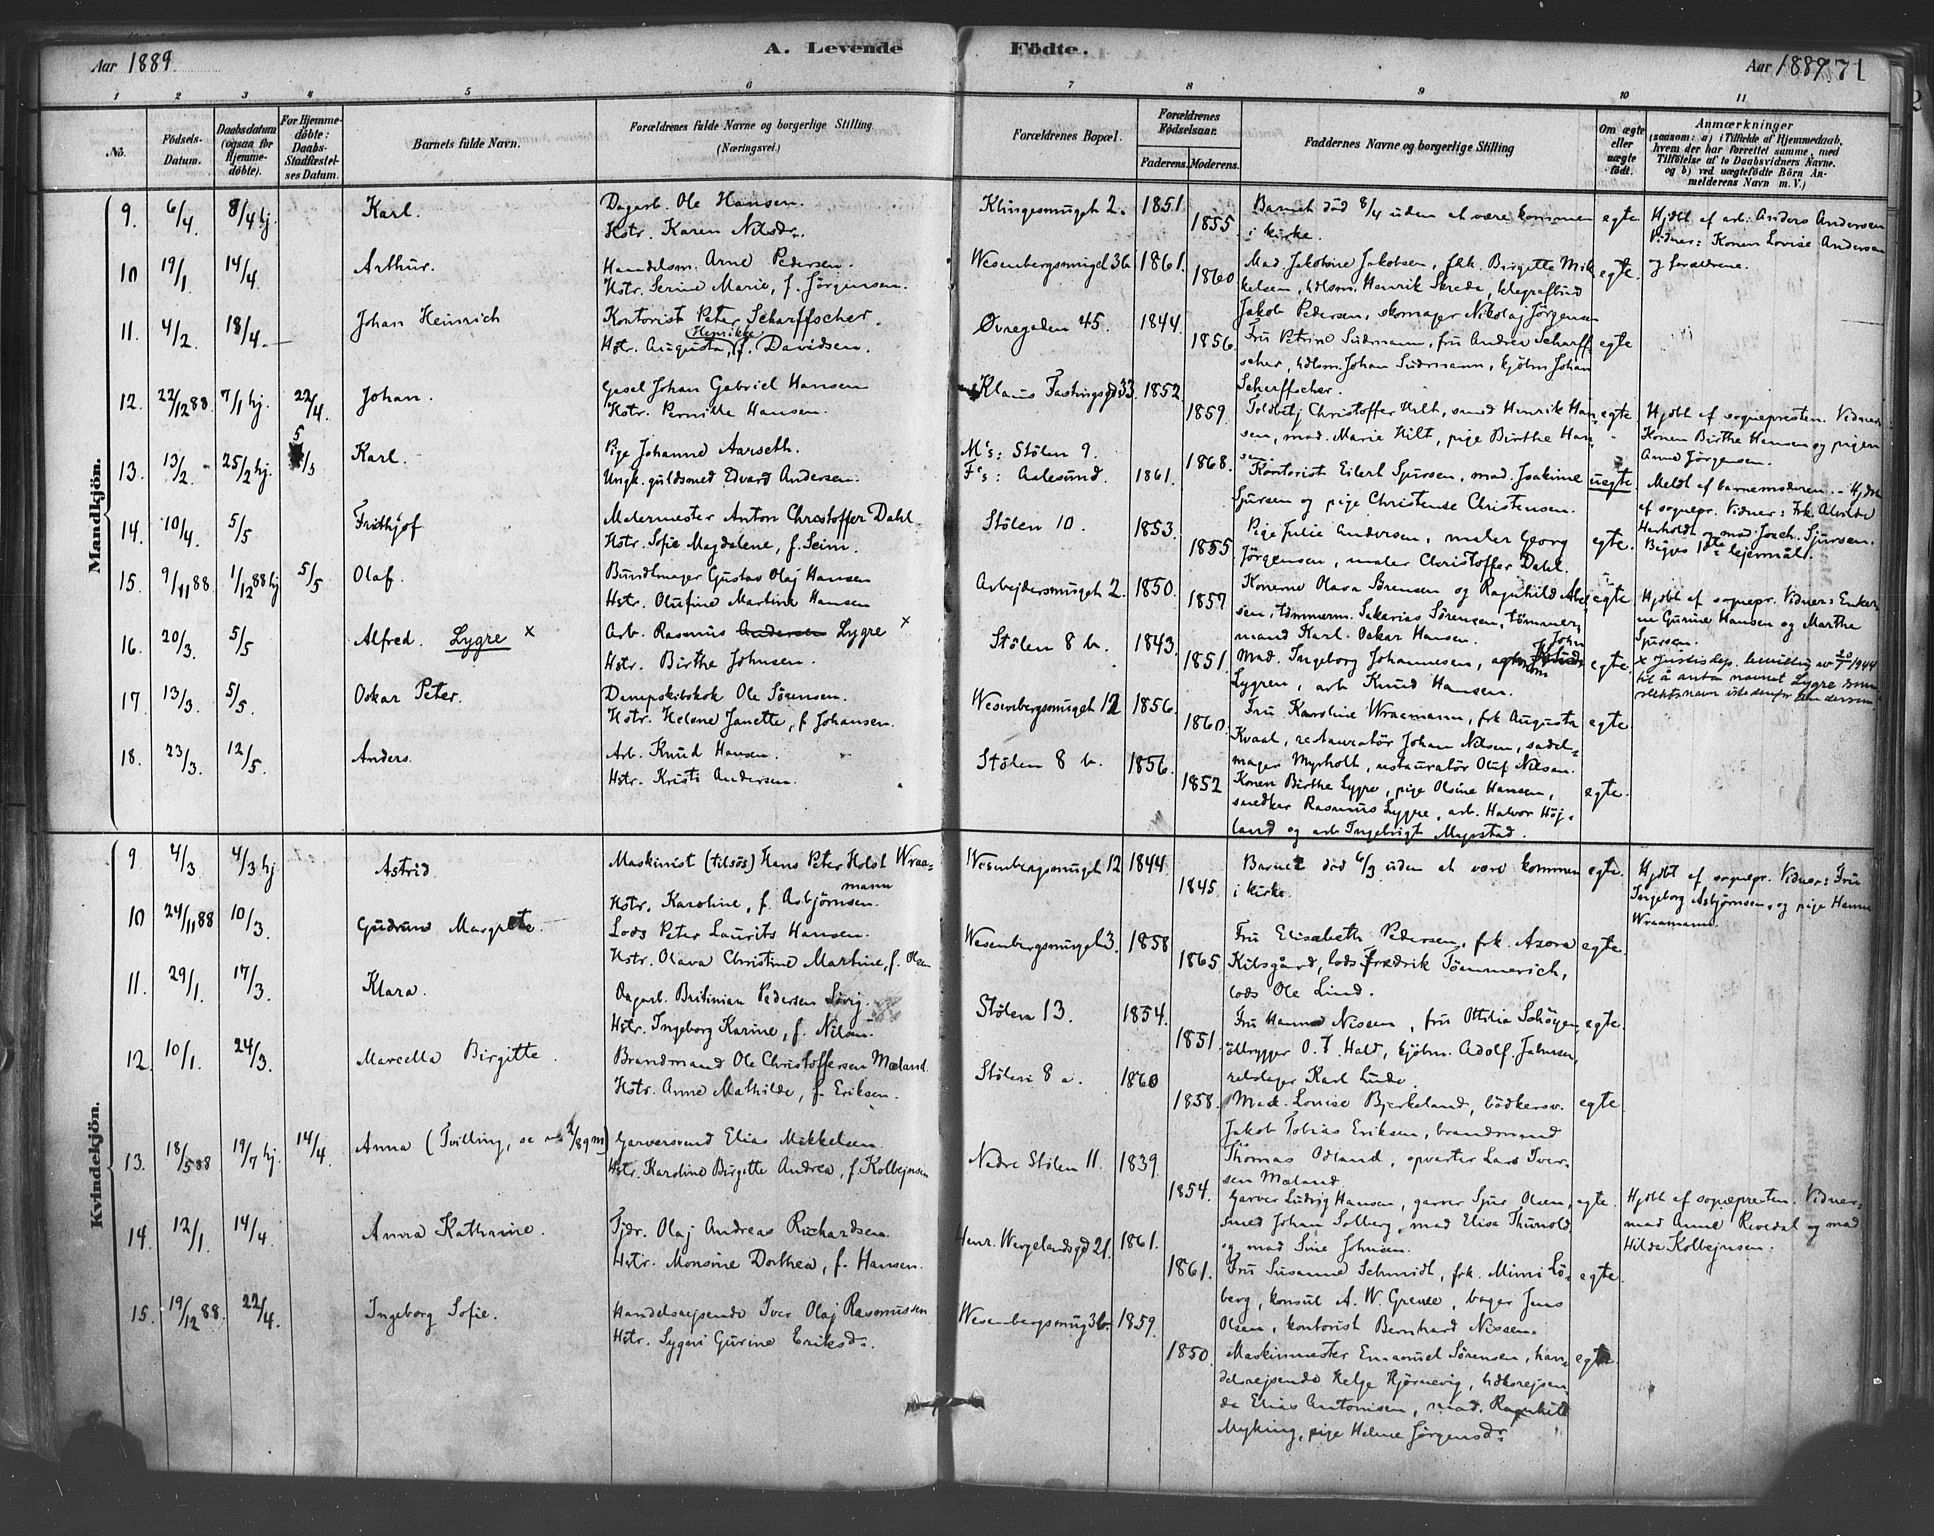 Aar 1889.
A. Levende Födte.
Aar 1889. 71
1 2 3 4 5 6 7 8 9 10 11
No. Födsels-Datum. Daabsdatum (ogsaa for Hjemmedøbte). For Hjemmedøbte: Daabs-Stadfæstelses Datum. Barnets fulde Navn. Forældrenes fulde Navne og borgerlige Stilling (Næringsvei.) Forældrenes Bopæl. Forældrenes Födselsaar. Faderens. Moderens. Faddernes Navne og borgerlige Stilling Om ægte eller uægte födt. Anmærkninger (saasom: a) i Tilfælde af Hjemmedaab, hvem der har forrettet samme, med Tilföielse af to Daabsvidners Navne. og b) ved uægtefödte Börn Anmelderens Navn m. V.)
Mandkjön.
9. 6/4 8/4 hj. Karl. Dagarb. Ole Hansen. Klingesmuget 2. 1851 Barnet död 8/4 uden at være kommen egte. Hjdbt af arb. Anders Andersen
Hstr. Karen Nilsdr. 1855. i kirke. Vidner: Konen Lovise Andersen
og forældrene.
10 19/1. 14/4. Arthur. Handelsm. Arne Pedersen. Wesenbergsmuget 3b 1861. Mad. Jakobine Jakobsen, frk. Birgitte Mik- egte.
Hstr. Serine Marie, f. Jörgensen. 1860. kelsen, hdlsm. Henrik Skrede, telegrafbud
Jakob Pedersen, skomager Nikolaj Jörgensen
11. 4/2. 18/4. Johan Heinrich Kontorist Peter Scharffscher. Øvregaden 45. 1844.
Hstr. Augusta Henrikke, f. Davidsen. 1856. Fru Petrine Sudmann, fru Andrea Scharff- egte
scher, hdlsm. Johan Sudmann, kjöbm. Johan
Scharffscher.
12. 22/12 88. 7/1 hj. 22/4. Johan. Gesel Johan Gabriel Hansen Klaus Fastingsgd 33. 1852.
Hstr. Pernille Hansen. 1859. Toldbetj Christoffer Hilt, smed Henrik Han- egte Hjdbt af sognepresten. Vidner:
sen, mad. Marie Hilt, pige Birthe Han- Konen Birthe Hansen og pigen
sen. Anne Jörgensen.
13. 13/2. 25/2 hj. 5/5 Karl. Pige Johanne Aarseth. M's: Stölen 9. 1868.
Ungk. guldsmed Edvard Andersen. F's: Aalesund. 1861. Kontorist Eilert Sjursen, mad. Joakime uegte Meldt af barnemoderen. Hjdbt
Sjursen og pige Christense Christensen. af sognepr. Vidner: Frk. Alvilde
Herholdt og mad Joach. Sjursen.
Begges 1ste lejermål.
14. 10/4. 5/5 Frithjof Malermester Anton Christoffer Dahl. Stölen 10. 1853. Pige Julie Andersen, maler Georg egte.
Hstr. Sofie Magdalene, f. Seim. 1855. Jörgensen, maler Christoffer Dahl.
15. 9/11 88 1/12 88 hj 5/5 Olaf. Bundtmager Gustav Olaj Hansen Arbejdersmuget 2. 1850. Konerne Olava Sörensen og Ragnhild egte Hjdbt af sognepr. Vidner: Enken
Hstr. Olufine Martine Hansen 1857 sen, tömmerm. Sakarias Sörensen, tömmer- Gurine Hansen og Marthe
mand Karl Oskar Hansen. Sjursen.
16. 20/3. 5/5 Alfred. Lygre x Arb. Rasmus Andersen Lygre x Stölen 8 b. 1843.
Hstr. Birthe Johnsen. 1851. Mad. Ingeborg Johannesen, John egte. x Justisdep. bevilling av 20/1 1944
Lygren, arb Knud Hansen. til å anta navnet Lygre som
slektsnavn istedenfor Andersen.
17. 13/3. 5/5. Oskar Peter. Dampskibskok Ole Sörensen. Wesenbergsmuget 12 1856.
Hstr. Helene Janette, f. Johansen. 1860. Fru Karoline Wraamann, frk Augusta egte.
Kvaal, restauratör Johan Nilsen, sadel-
mager Myrholt, restauratör Oluf Nilsen.
18. 23/3. 12/5. Anders. Arb. Knud Hansen. Stölen 8 b. 1856.
Hstr. Kristi Andersen. 1852 Konen Birthe Lygre, pige Olsine Hansen, egte.
snedker Rasmus Lygre, arb. Halvor Höj-
land og arb Ingebrigt Myrstad.
Kvindekjön.
9. 4/3. 4/3 hj Astrid. Maskinist (tilsös) Hans Peter Holst Wraa- mann Wesenbergsmuget 12 1844. Barnet död 6/3 uden at være kommen egte. Hjdbt af sognepr. Vidner: Fru
Hstr. Karoline, f. Asbjörnsen. 1845. i kirke. Ingeborg Asbjörnsen, og pige Hanna
Wraamann.
10 24/11 88 10/3. Gudrun Margrete. Lods Peter Laurits Hansen. Wesenbergsmuget 3. 1858 Fru Elisabeth Pedersen, frk. Azora egte.
Hstr. Olava Christine Martine, f. Olsen 1865. Kilsgård, lods Fredrik Tömmerich,
lods Ole Lind.
11. 29/1. 17/3. Klara. Dagarb. Britinian Pedersen Lövig. Stölen 13. 1854. Fru Hanna Nissen, fru Ottilia egte.
Hstr. Ingeborg Karine, f. Nilsen. 1851. O. T. Hald, kjöbm. Adolf Jahnsen,
rebslager Karl Lude.
12. 10/1. 24/3. Marcella Birgitte. Brandmand Ole Christoffersen Mæland. Stölen 8 a. 1860
Hstr. Anne Mathilde, f. Eriksen. 1858. Mad. Lovise Bjerkeland, bödkersv. egte.
Jakob Tobias Eriksen, brandmand
Thomas Odland, opvarter Lars Iver-
sen Mæland.
13. 18/5 88 19/7 hj. 14/4. Anna (Tvilling, se no 1/89 m) Garversvend Elias Mikkelsen. Nedre Stölen 11. 1839.
Hstr. Karoline Birgitte Andrea, f. Kolbejnsen 1854. Garver Ludvig Hansen, garver Sjur Olsen, egte. Hjdbt af sognepresten. Vidner:
smed Johan Solberg, mad Elise Thunold, mad Anne Revedal og mad.
og mad Sine Johnsen. Hilda Kolbejnsen.
14. 12/1. 14/4. Anna Kathrine. Fjdr. Olaj Andreas Richardsen. Henr. Wergelandsgd 21. 1861.
Hstr. Monsine Dorthea, f. Hansen. 1861. Fru Susanne Schmidt, frk. Mimi Lö- egte.
berg, konsul A. W. Greve, bager Jens
Olsen, kontorist Bernhard Nissen.
15. 19/12 88. 22/4. Ingeborg Sofie. Handelsrejsende Iver Olaj Rasmussen Wesenbergsmug 3b. 1859.
Hstr. Sygni Gurine Eriksdr. 1850. Maskinmester Emanuel Sörensen, han- egte.
delsrejsende Helge Hjörnevig, hdlsrejsen
de Elias Antonisen, mad. Ragnhild
Myking, pige Helene Jörgensdr.